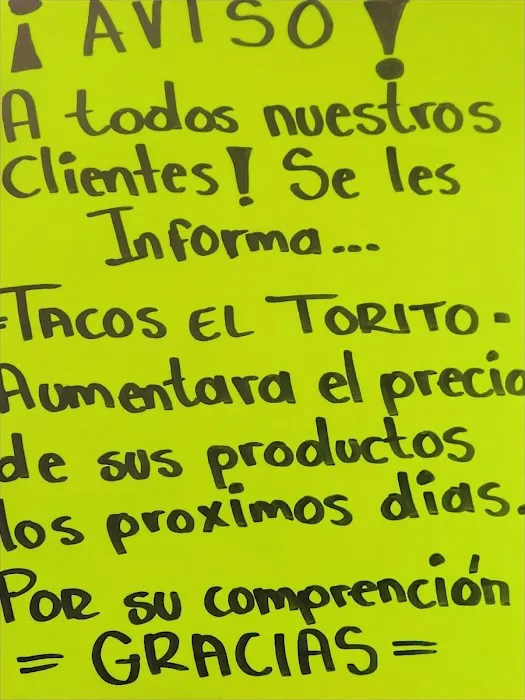 ¡AVISO!
A todos nuestros
Clientes! Se les
Informa...
-TACOS EL TORITO-
Aumentara el precio
de sus productos
los proximos dias.
POR su comprención
= GRACIAS =